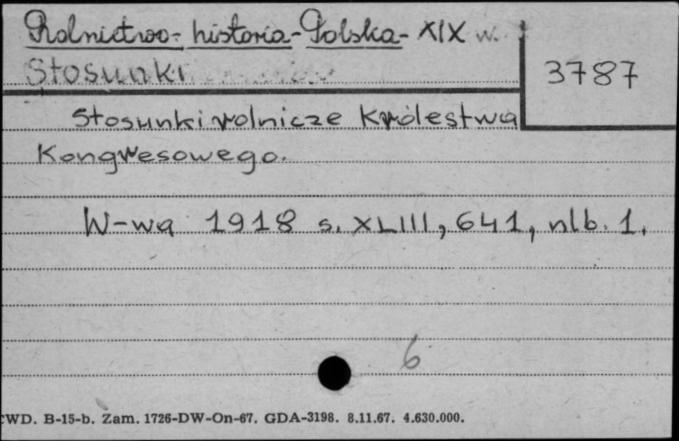 Rolnictwo- historia-Polska- XIX w.
Stosunki
3787
Stosunki rolnicze Królestwa
Kongresowego.
W-wa 1918 s. XLIII, 641, nlb. 1.
6
CWD. B-15-b. Zam. 1726-DW-On-67. GDA-3198. 8.11.67. 4.630.000.